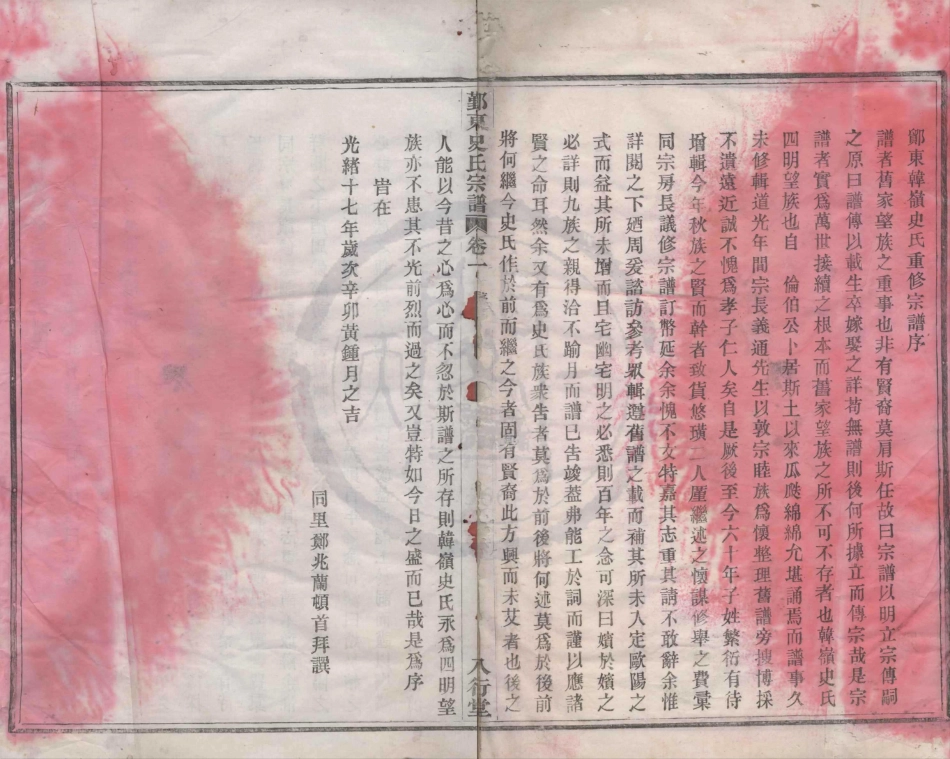 鄮東韓嶺史氏重修宗譜序
譜者舊家望族之重事也非有賢裔莫肩斯任故曰宗譜以明立宗傳嗣
之原曰譜傳以載生卒嫁娶之詳苟無譜則後何所據立而傳宗哉是宗
譜者實爲萬世接續之根本而舊家望族之所不可不存者也韓嶺史氏
四明望族也自 倫伯公卜居斯土以來瓜瓞綿綿允堪誦焉而譜事久
未修輯道光年間宗長義通先生以敦宗睦族爲懷整理舊譜旁搜博採
不遺遠近誠不愧爲孝子仁人矣自是厥後至今六十年子姓繁衍有待
增輯今年秋族之賢而幹者致貨悠璜二人厪繼述之懷謀修舉之費彙
同宗房長議修宗譜訂幣延余余愧不文特嘉其志重其請不敢辭余惟
詳閱之下廼周爰諮訪參考眾輯遵舊譜之載而補其所未入定歐陽之
式而益其所未增而且宅幽宅明之必悉則百年之念可深曰嬪於嬪之
必詳則九族之親得洽不踰月而譜已告竣蓋弗能工於詞而謹以應諸
賢之命耳然余又有爲史氏族衆告者莫爲於前後將何述莫爲於後前
將何繼今史氏作於前而繼之今者固有賢裔此方興而未艾者也後之
鄞東史氏宗譜 卷一
八行堂
人能以今昔之心爲心而不忽於斯譜之所存則韓嶺史氏永爲四明望
族亦不患其不光前烈而過之矣又豈特如今日之盛而已哉是爲序
旹在
光緒十七年歲次辛卯黃鍾月之吉
同里鄭兆蘭頓首拜譔